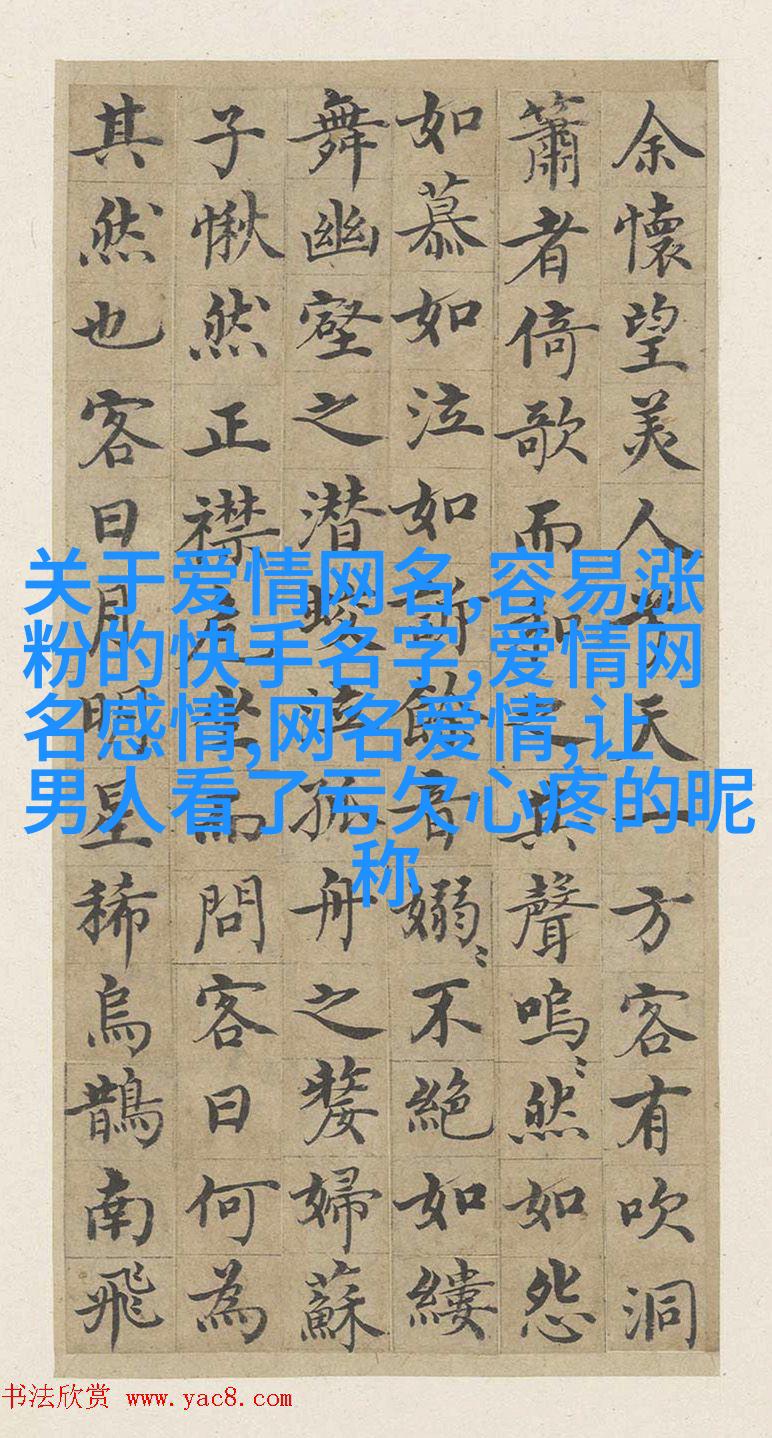 余懷望美人兮天一方客有吹洞
簫者倚歌而和之其聲嗚〻然如怨
如慕如泣如訴餘音嫋〻不絕如縷
舞幽壑之潛蛟泣孤舟之嫠婦蘇
子愀然正襟危坐而問客曰何為
其然也客曰月明星稀烏鵲南飛
关于爱情网名,容易涨
粉的快手名字,爱情网
名感情,网名爱情,让
男人看了亏欠心疼的昵
称
书法欣赏 www.yac8.com